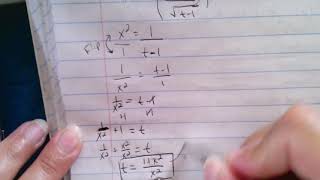 √t-1
flip x²/1 = 1/t-1
1/x² = t-1/1
1/x² = t-1
+1 +1
1/x² + 1 = t
1/x² + x²/x² = t
t = 1+x²/x²